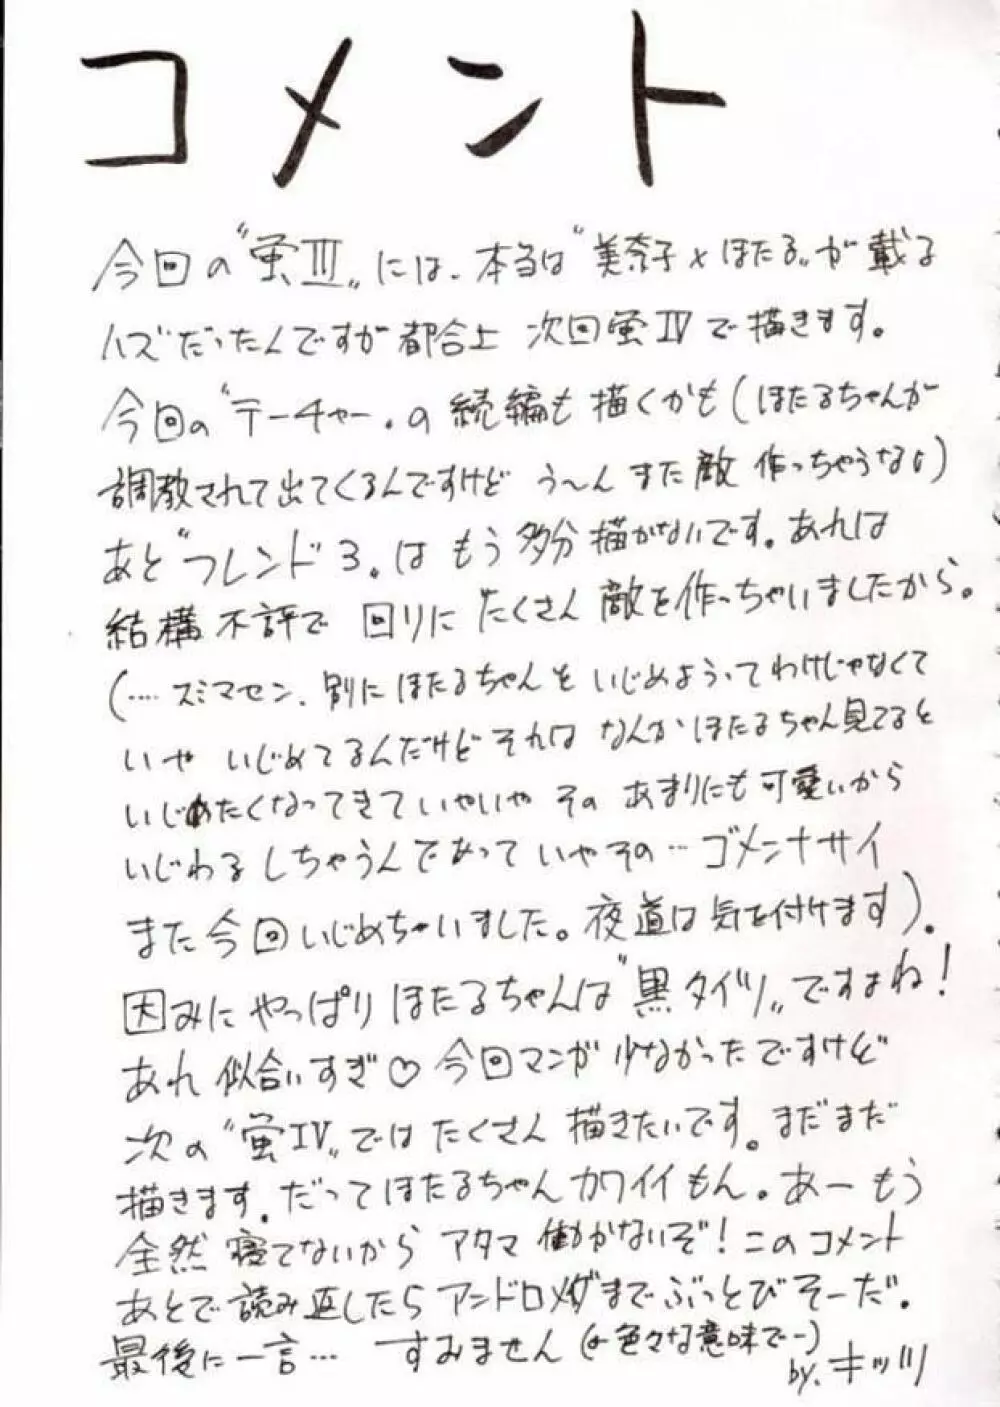 コメント
今回の〝蛍Ⅲ〟には、本当は〝美奈子×ほたる〟が載る
ハズだったんですが都合上 次回蛍Ⅳで描きます。
今回の〝テーチャー〟の続編も描くかも(ほたるちゃんが
調教されて出てくるんですけど う〜ん また敵作っちゃうなぁ)
あと〝フレンド3〟はもう多分描かないです。あれは
結構不評で 回りにたくさん敵を作っちゃいましたから。
(‥‥スミマセン、別にほたるちゃんをいじめようってわけじゃなくて
いや いじめてるんだけどそれは なんかほたるちゃん見てると
いじめたくなってきていやいや その あまりにも可愛いから
いじわるしちゃうんであって いやその… ゴメンナサイ
また今回いじめちゃいました。夜道は気を付けます)。
因みにやっぱりほたるちゃんは〝黒タイツ〟ですよね!
あれ似合いすぎ♡今回マンガ少なかったですけど
次の〝蛍Ⅳ〟ではたくさん描きたいです。まだまだ
描きます。だってほたるちゃんカワイイもん。あーもう
全然寝てないからアタマ働かないぞ!このコメント
あとで読み返したらアンドロメダまでぶっとびそーだ。
最後に一言… すみません(←色々な意味で-)
by.キッツ